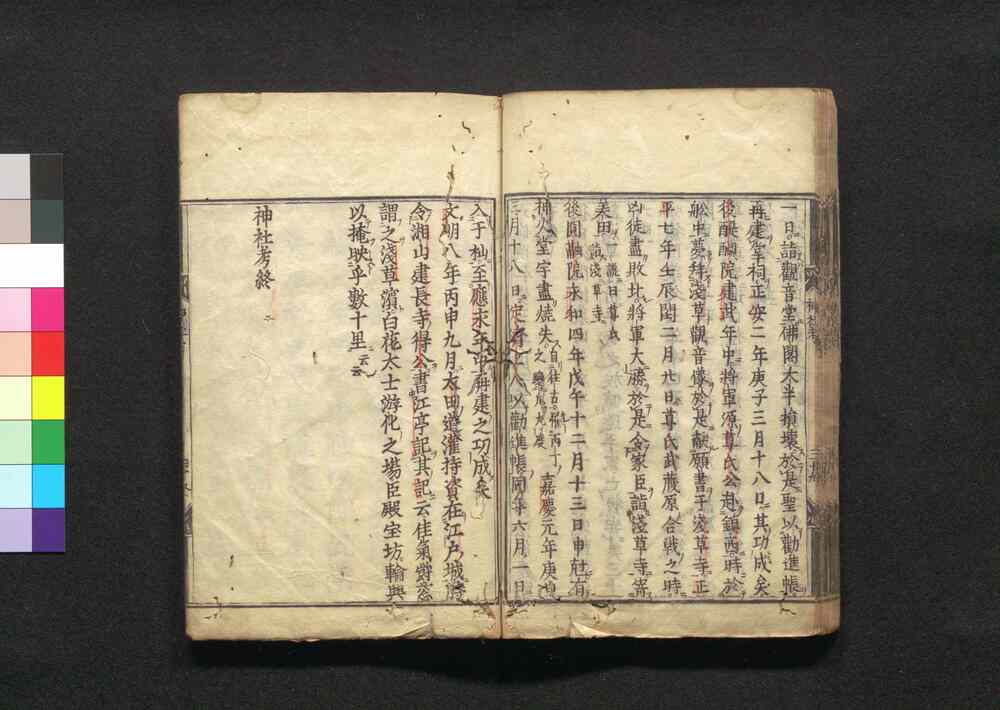 一日詣觀音堂佛閣大半損壞於是聖以勸進帳
再建堂祠正安二年庚子三月十八日其功成矣
後醍醐院建武年中將軍源尊氏公赴鎮西時於
舩中夢拜淺草觀音像於是献願書于淺草寺正
平七年壬辰閏二月廿八日尊氏武藏原合戰之時
凶徒盡敗北將軍大勝於是令家臣詣淺草寺寄
美田
詣淺草寺
後圓融院永和四年戊午十二月十三日申尅有
神人堂宇盡燒失
之
自往古罹丙丁
嘉慶元年
三月十八日定濟上人以勸進帳同年六月一日
入于杣至應永年中再建之功成矣
文明八年丙申九月太田道灌持資在江戶城
令湘山建長寺得公書江亭記其記云佳氣鬱葱
謂之淺草濱白花大士游化之場臣殿宝坊輪奐
以掩映乎數十里云云
神社考終